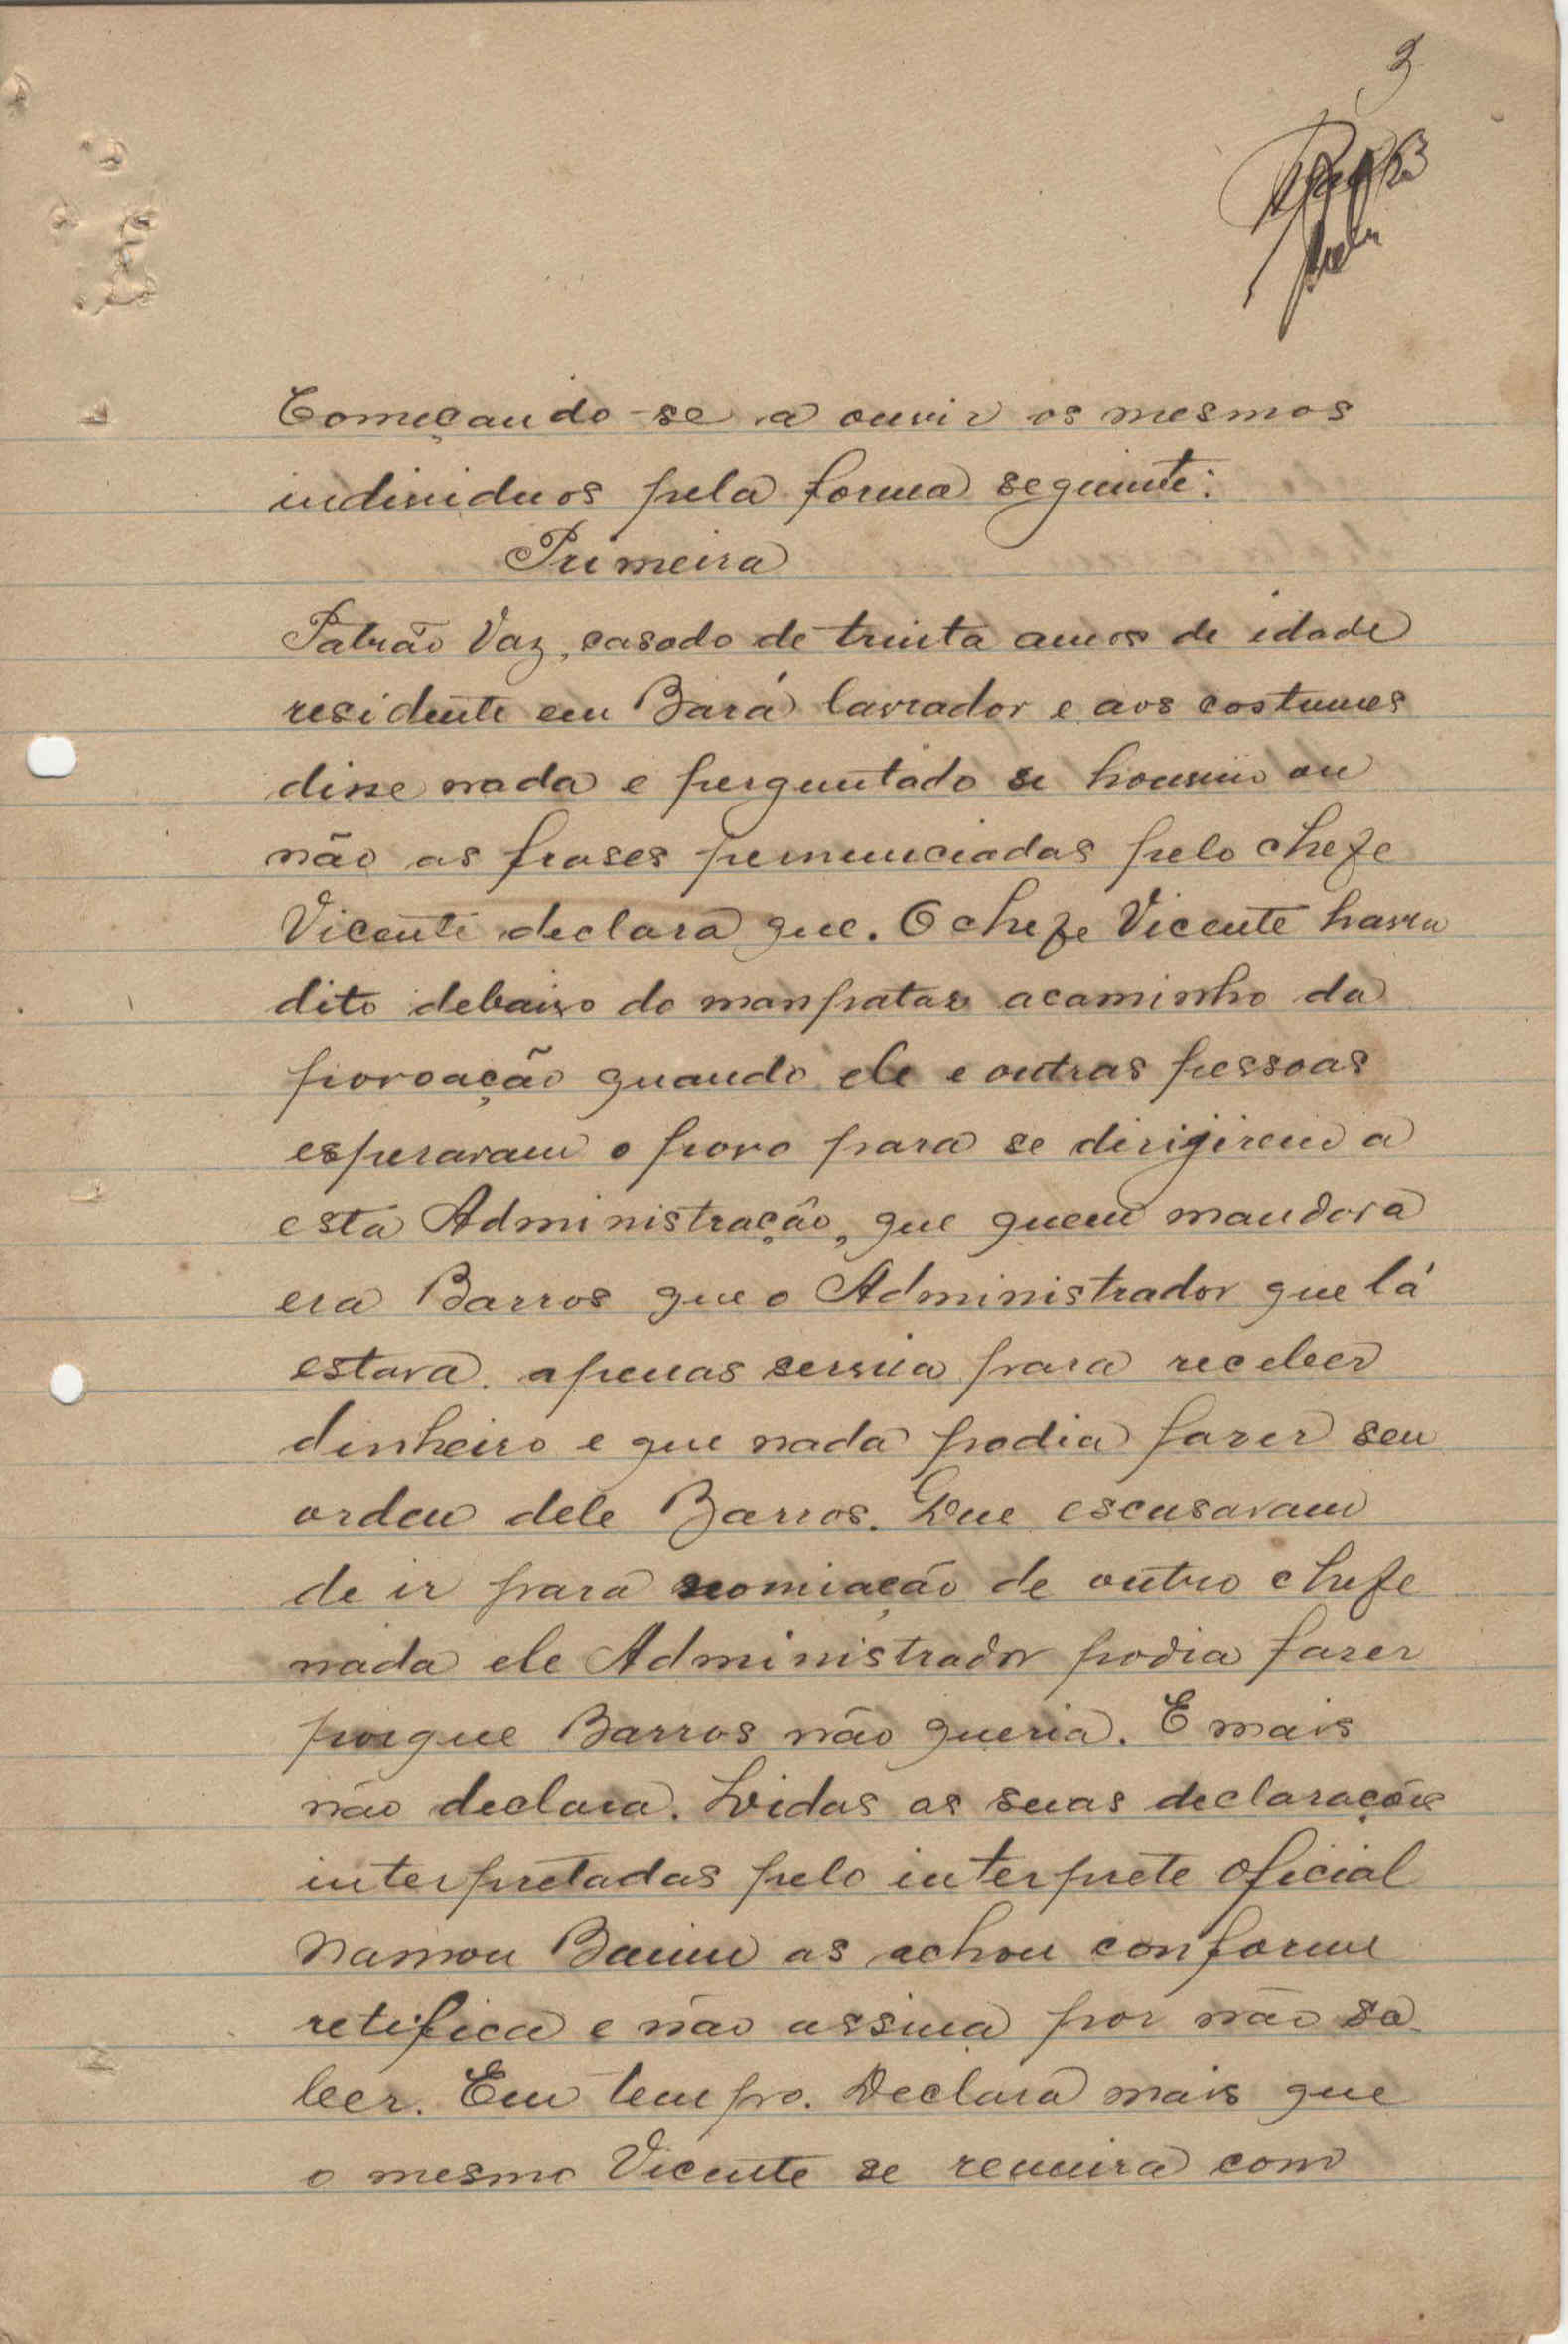 3
Começando-se a ouvir os mesmos
individuos pela forma seguinte:
Primeira
Patrão Vaz, casado de trinta anos de idade
residente em Bará lavrador e aos costumes
disse nada e perguntado se houviu ou
não as frases pernunciadas pelo chefe
Vicente declara que. O chefe Vicente havia
dito debaixo do manpataz acaminho da
povoação quando ele e outras pessoas
esperavam o povo para se dirigirem a
esta Administração, que quem mandava
era Barros que o Administrador que lá
estava apenas servia para receber
dinheiro e que nada podia fazer sem
ordem dele Barros. Que escusavam
de ir para nomiação de outro chefe
nada ele Administrador podia fazer
porque Barros não queria. E mais
não declara. Lidas as suas declarações
interpretadas pelo interprete oficial
as achou conforme
retifica e não assina por não sa-
ber. Em tempo. Declara mais que
o mesmo Vicente se reunira com